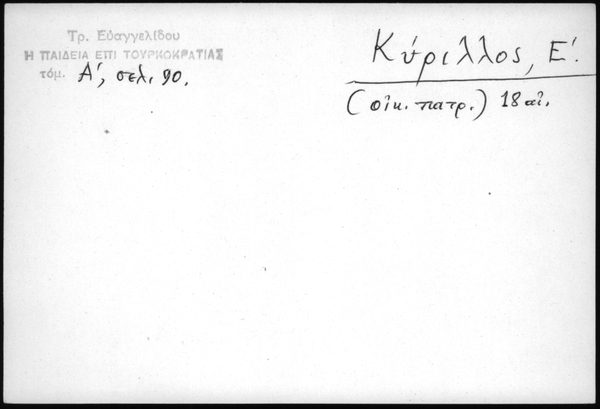 Τρ. Εὐαγγελίδου
Η ΠΑΙΔΕΙΑ ΕΠΙ ΤΟΥΡΚΟΚΡΑΤΙΑΣ
τόμ. Α', σελ. 90.
Κύριλλος, Ε'.
(οἰκ. πατρ.) 18 αἰ.